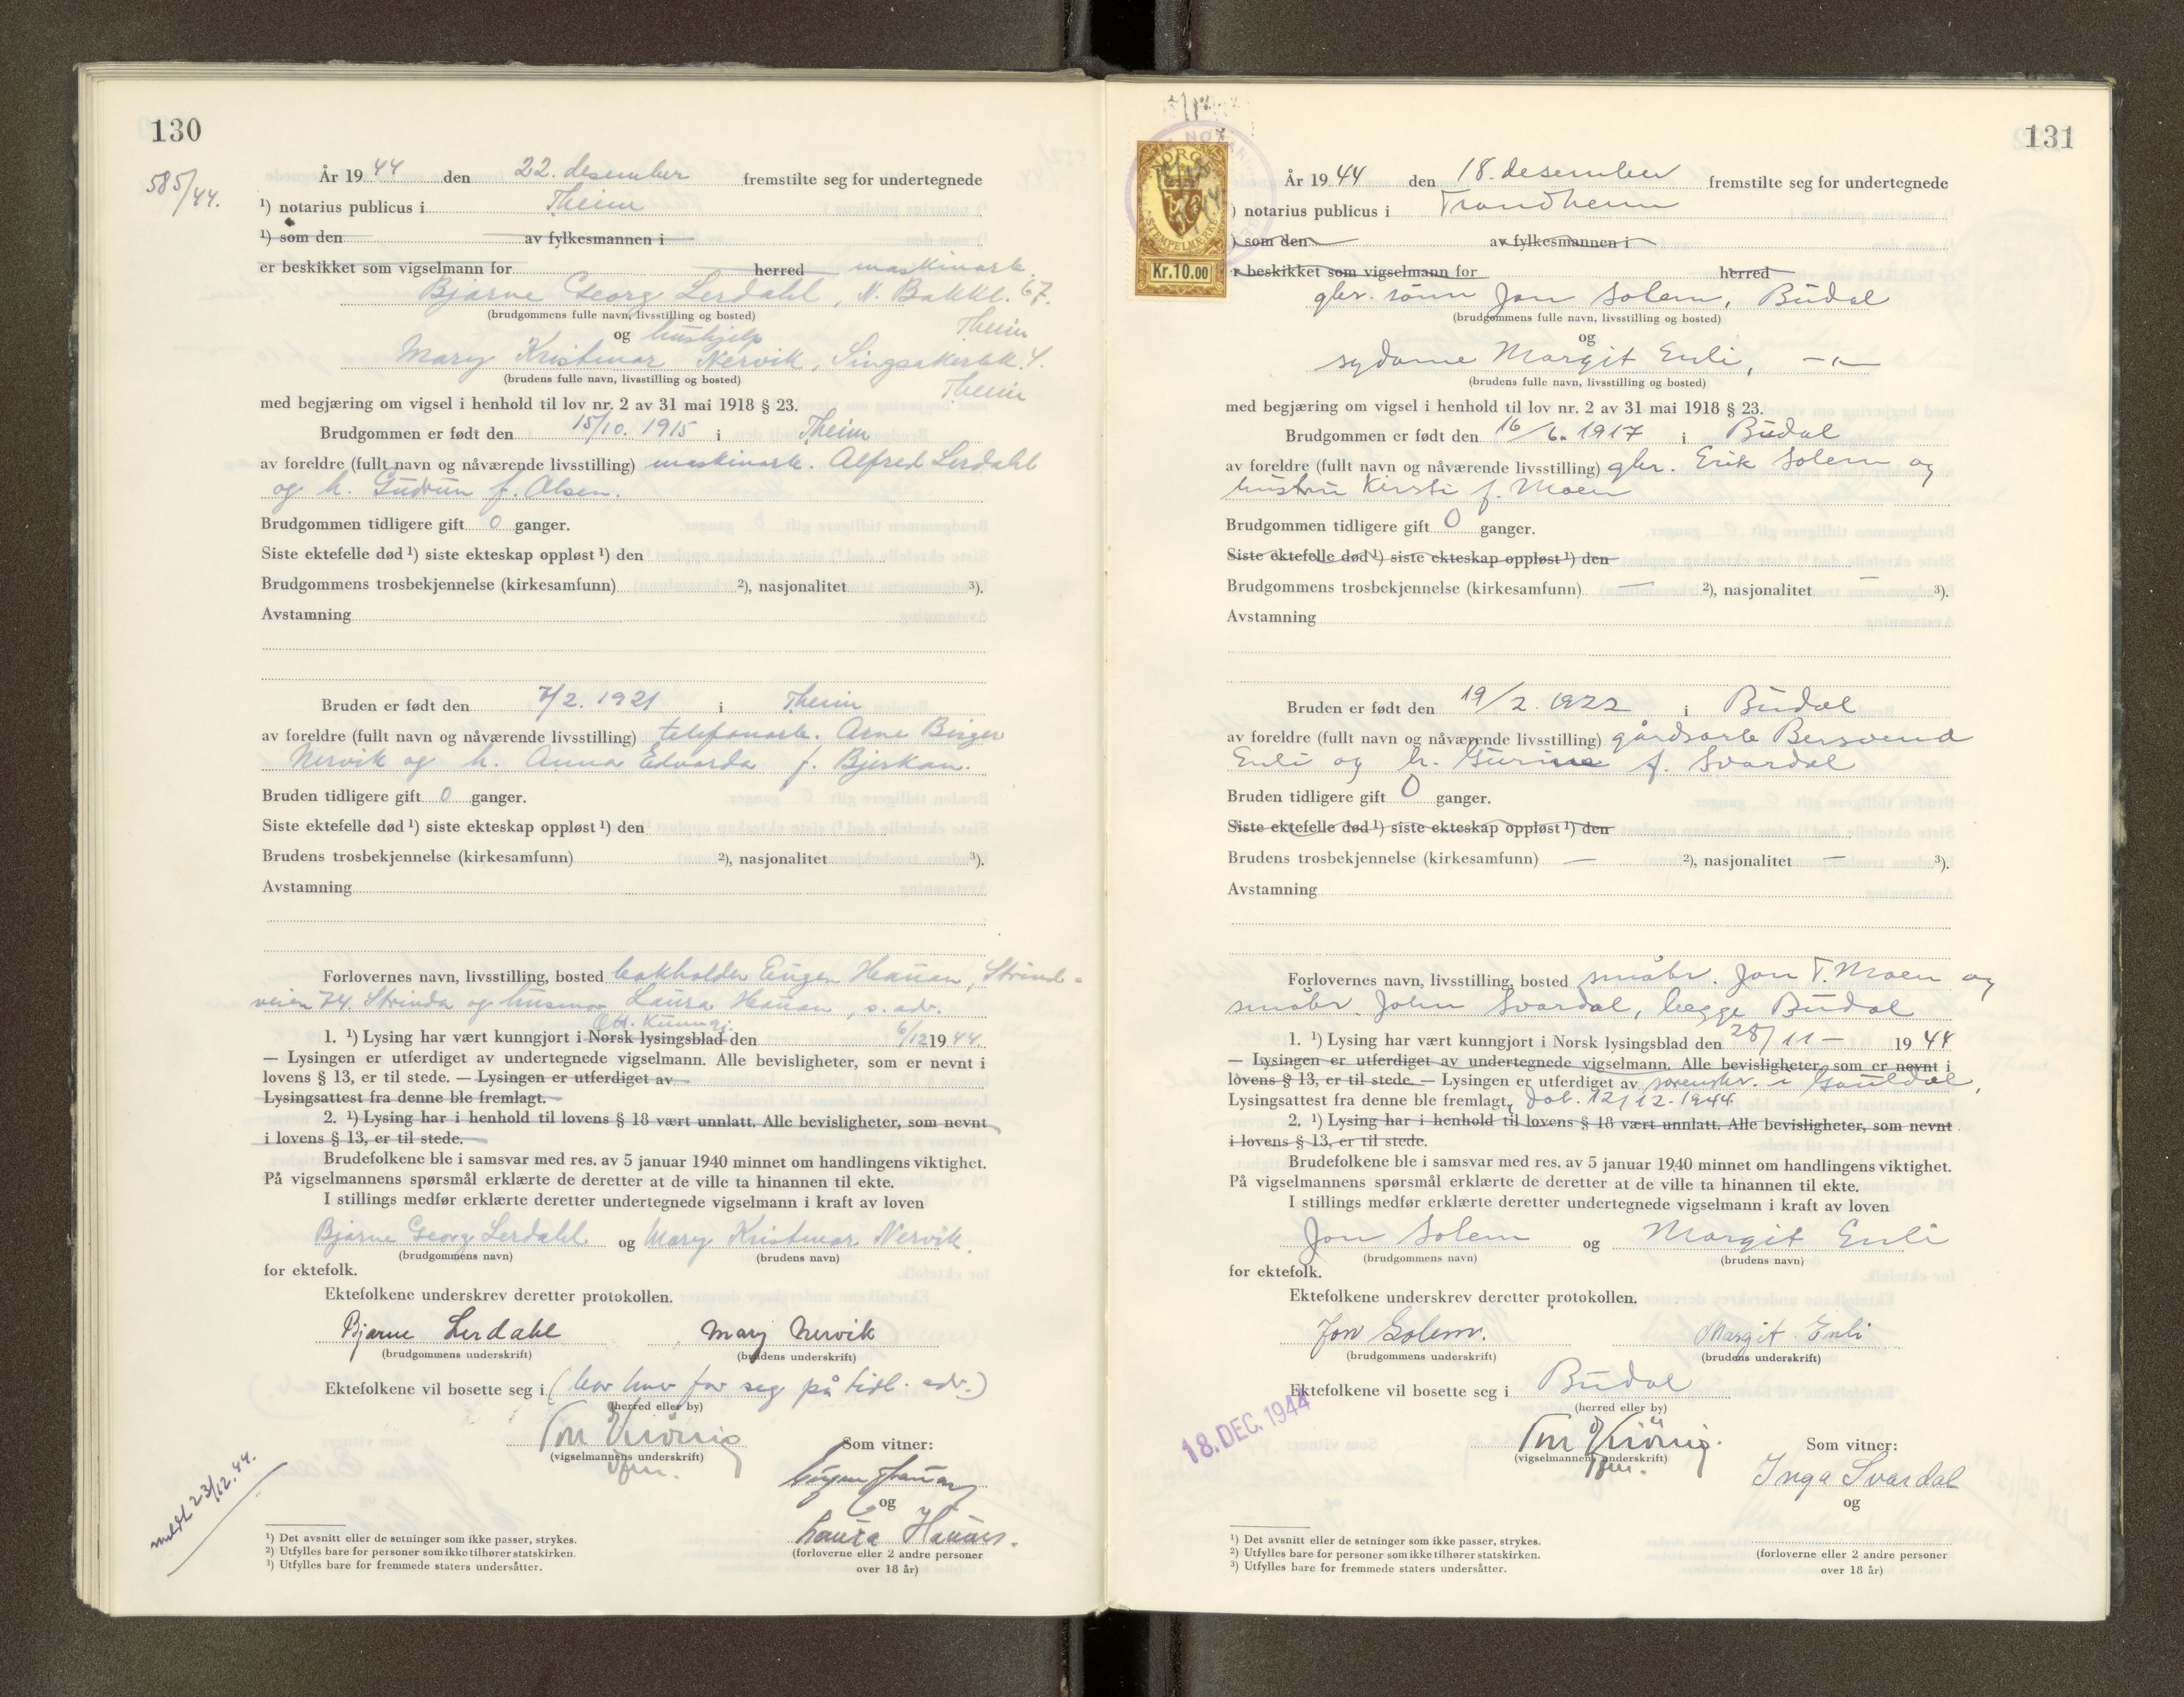 130
585/44.
År 1944 den 22. desember fremstilte seg for undertegnede
¹) notarius publicus i Theim
¹) som den av fylkesmannen i
er beskikket som vigselmann for herred maskinarb.
Bjarne Georg Lerdahl, N. Bakkl. 67.
(brudgommens fulle navn, livsstilling og bosted) Theim
og hushjelp
Mary Kristmar Nervik, Singsakerbk. 4.
(brudens fulle navn, livsstilling og bosted) Theim
med begjæring om vigsel i henhold til lov nr. 2 av 31 mai 1918 § 23.
Brudgommen er født den 15/10. 1915 i Theim
av foreldre (fullt navn og nåværende livsstilling) maskinarb. Alfred Lerdahl
og h. Gudrun f. Olsen.
Brudgommen tidligere gift 0 ganger.
Siste ektefelle død ¹) siste ekteskap oppløst ¹) den
Brudgommens trosbekjennelse (kirkesamfunn) ²), nasjonalitet ³).
Avstamning
Bruden er født den 7/2. 1921 i Theim
av foreldre (fullt navn og nåværende livsstilling) telefonarb. Arne Birger
Nervik og h. Anna Edvarda f. Bjerkan.
Bruden tidligere gift 0 ganger.
Siste ektefelle død ¹) siste ekteskap oppløst ¹) den
Brudens trosbekjennelse (kirkesamfunn) ²), nasjonalitet ³).
Avstamning
Forlovernes navn, livsstilling, bosted bokholder Eugen Hauan, Strind-
veien 74. Strinda og husmor Laura Hauan, s. adr.
Off. Kunngj.
1. ¹) Lysing har vært kunngjort i Norsk lysingsblad den 6/12 1944.
— Lysingen er utferdiget av undertegnede vigselmann. Alle bevisligheter, som er nevnt i
lovens § 13, er til stede. — Lysingen er utferdiget av
Lysingsattest fra denne ble fremlagt.
2. ¹) Lysing har i henhold til lovens § 18 vært unnlatt. Alle bevisligheter, som nevnt
i lovens § 13, er til stede.
Brudefolkene ble i samsvar med res. av 5 januar 1940 minnet om handlingens viktighet.
På vigselmannens spørsmål erklærte de deretter at de ville ta hinannen til ekte.
I stillings medfør erklærte deretter undertegnede vigselmann i kraft av loven
Bjarne Georg Lerdahl og Mary Kristmar Nervik.
(brudgommens navn) (brudens navn)
for ektefolk.
Ektefolkene underskrev deretter protokollen.
Bjarne Lerdahl Mary Nervik
(brudgommens underskrift) (brudens underskrift)
Ektefolkene vil bosette seg i (bor hver for seg på tidl. adr.)
(herred eller by)
(vigselmannens underskrift)
Som vitner:
Eugen Hauan
og
Laura Hauan.
(forloverne eller 2 andre personer
over 18 år)
meldt 23/12.44.
¹) Det avsnitt eller de setninger som ikke passer, strykes.
²) Utfylles bare for personer som ikke tilhører statskirken.
³) Utfylles bare for fremmede staters undersåtter.
131
NORGE
STEMPELMERKE
Kr.10.00
År 1944 den 18. desember fremstilte seg for undertegnede
) notarius publicus i Trondheim
) som den av fylkesmannen i
r beskikket som vigselmann for herred
gbr. sønn Jon Solem, Budal
(brudgommens fulle navn, livsstilling og bosted)
og
sydame Margit Enli, —"—
(brudens fulle navn, livsstilling og bosted)
med begjæring om vigsel i henhold til lov nr. 2 av 31 mai 1918 § 23.
Brudgommen er født den 16/6. 1917 i Budal
av foreldre (fullt navn og nåværende livsstilling) gbr. Erik Solem og
hustru Kirsti f. Moen
Brudgommen tidligere gift 0 ganger.
Siste ektefelle død ¹) siste ekteskap oppløst ¹) den
Brudgommens trosbekjennelse (kirkesamfunn) — ²), nasjonalitet — ³).
Avstamning
Bruden er født den 19/2. 1922 i Budal
av foreldre (fullt navn og nåværende livsstilling) gårdsarb Bersvend
Enli og h. Gurine f. Svardal
Bruden tidligere gift 0 ganger.
Siste ektefelle død ¹) siste ekteskap oppløst ¹) den
Brudens trosbekjennelse (kirkesamfunn) — ²), nasjonalitet — ³).
Avstamning
Forlovernes navn, livsstilling, bosted småbr. Jon T. Moen og
småbr. John Svardal, begge Budal
1. ¹) Lysing har vært kunngjort i Norsk lysingsblad den 28/11 — 1944
— Lysingen er utferdiget av undertegnede vigselmann. Alle bevisligheter, som er nevnt i
lovens § 13, er til stede. — Lysingen er utferdiget av sorenskr. i Gauldal,
Lysingsattest fra denne ble fremlagt, dat. 12/12-1944.
2. ¹) Lysing har i henhold til lovens § 18 vært unnlatt. Alle bevisligheter, som nevnt
i lovens § 13, er til stede.
Brudefolkene ble i samsvar med res. av 5 januar 1940 minnet om handlingens viktighet.
På vigselmannens spørsmål erklærte de deretter at de ville ta hinannen til ekte.
I stillings medfør erklærte deretter undertegnede vigselmann i kraft av loven
Jon Solem og Margit Enli
(brudgommens navn) (brudens navn)
for ektefolk.
Ektefolkene underskrev deretter protokollen.
Jon Solem. Margit Enli
(brudgommens underskrift) (brudens underskrift)
Ektefolkene vil bosette seg i Budal
(herred eller by)
18. DEC. 1944
(vigselmannens underskrift)
Som vitner:
Inga Svardal
og
(forloverne eller 2 andre personer
over 18 år)
¹) Det avsnitt eller de setninger som ikke passer, strykes.
²) Utfylles bare for personer som ikke tilhører statskirken.
³) Utfylles bare for fremmede staters undersåtter.